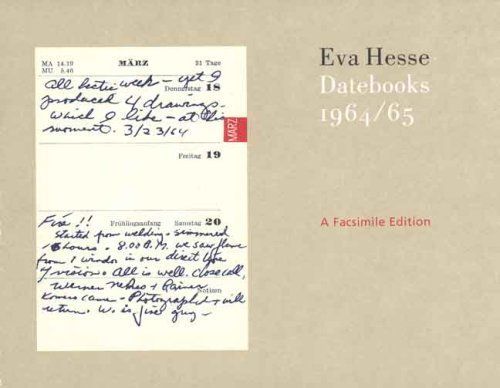 MA 14.19 MÄRZ 31 Tage
MU 5.46
Donnerstag 18
all hectic week – yet I
produced 4 drawings –
which I like – at this
moment. 3/23/64
MÄRZ
Freitag 19
Frühlingsanfang Samstag 20
Fire !!
Started from welding – simmered
hours. 8:00 P.M. we saw flame
from 1 window in our direct line
of vision. All is well. close call,
Werner Nekes + Rainer
Notizen
Komers came – Photographed + will
return. W. is fine guy –
Eva Hesse
Datebooks
1964/65
A Facsimile Edition